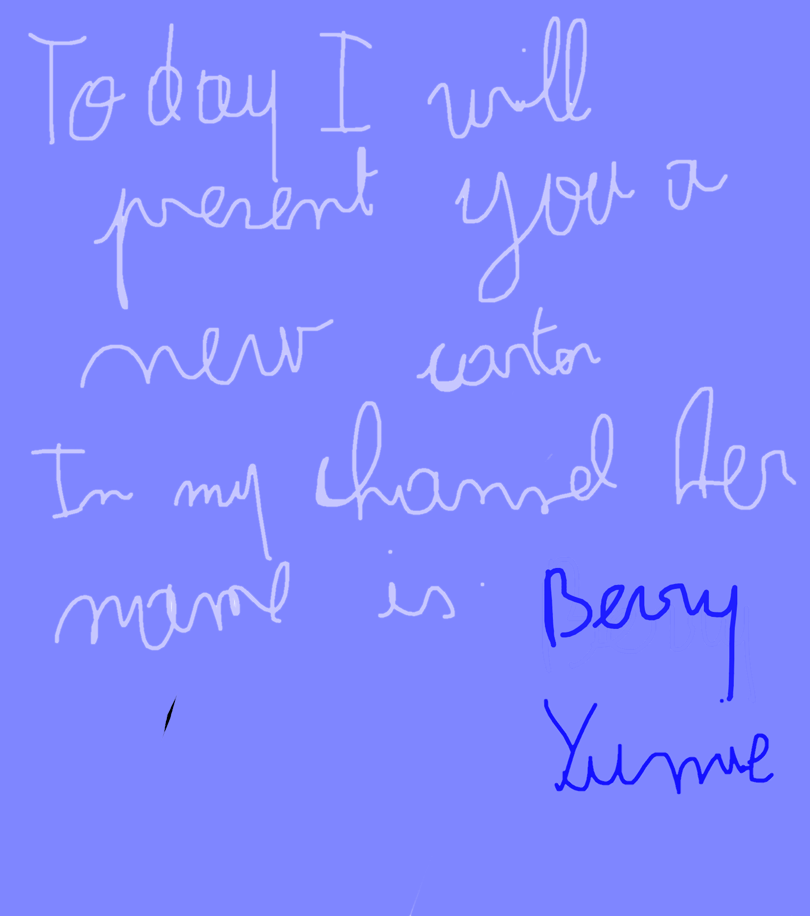 Today I will
present you a
new carton
In my channel her
name is
Berry
Yumie